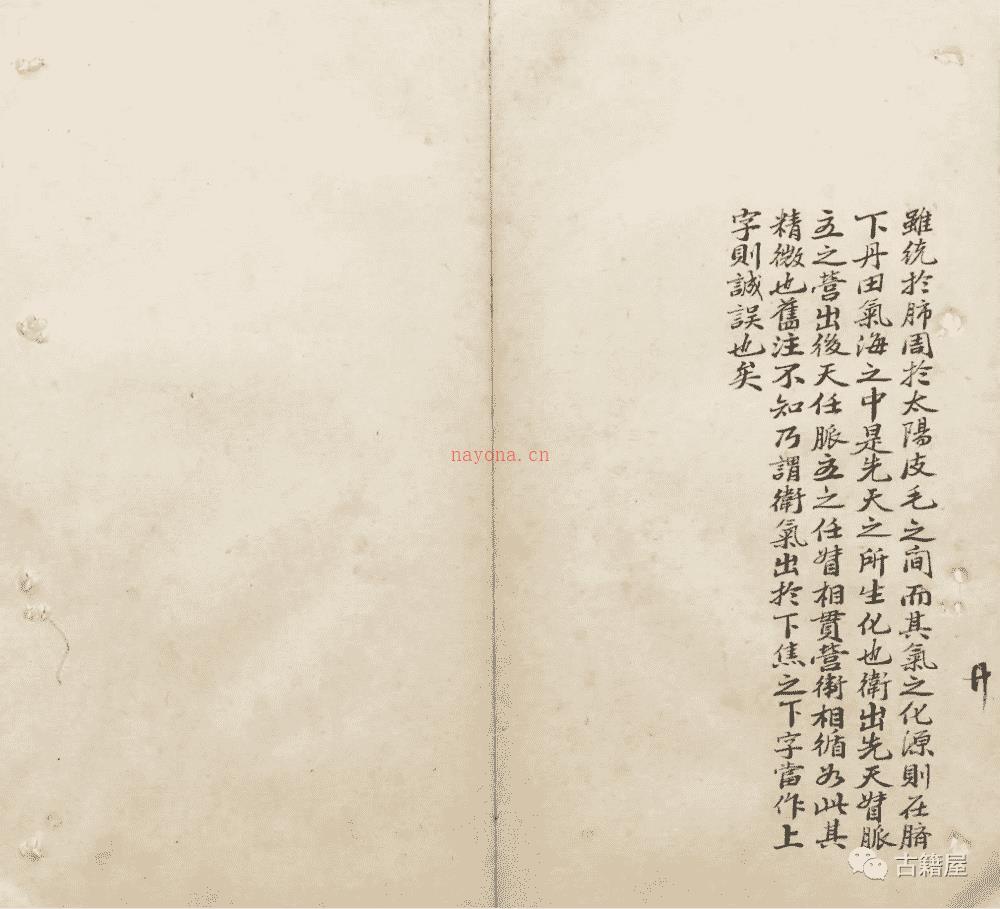 雖統於肺周於太陽皮毛之間而其氣之化源則在臍
下丹田氣海之中是先天之所生化也衛出先天督脈
主之營出後天任脈主之任督相貫營衛相循如此其
精微也舊注不知乃謂衛氣出於下焦之下字當作上
字則誠誤也矣
nayona.cn
古籍屋